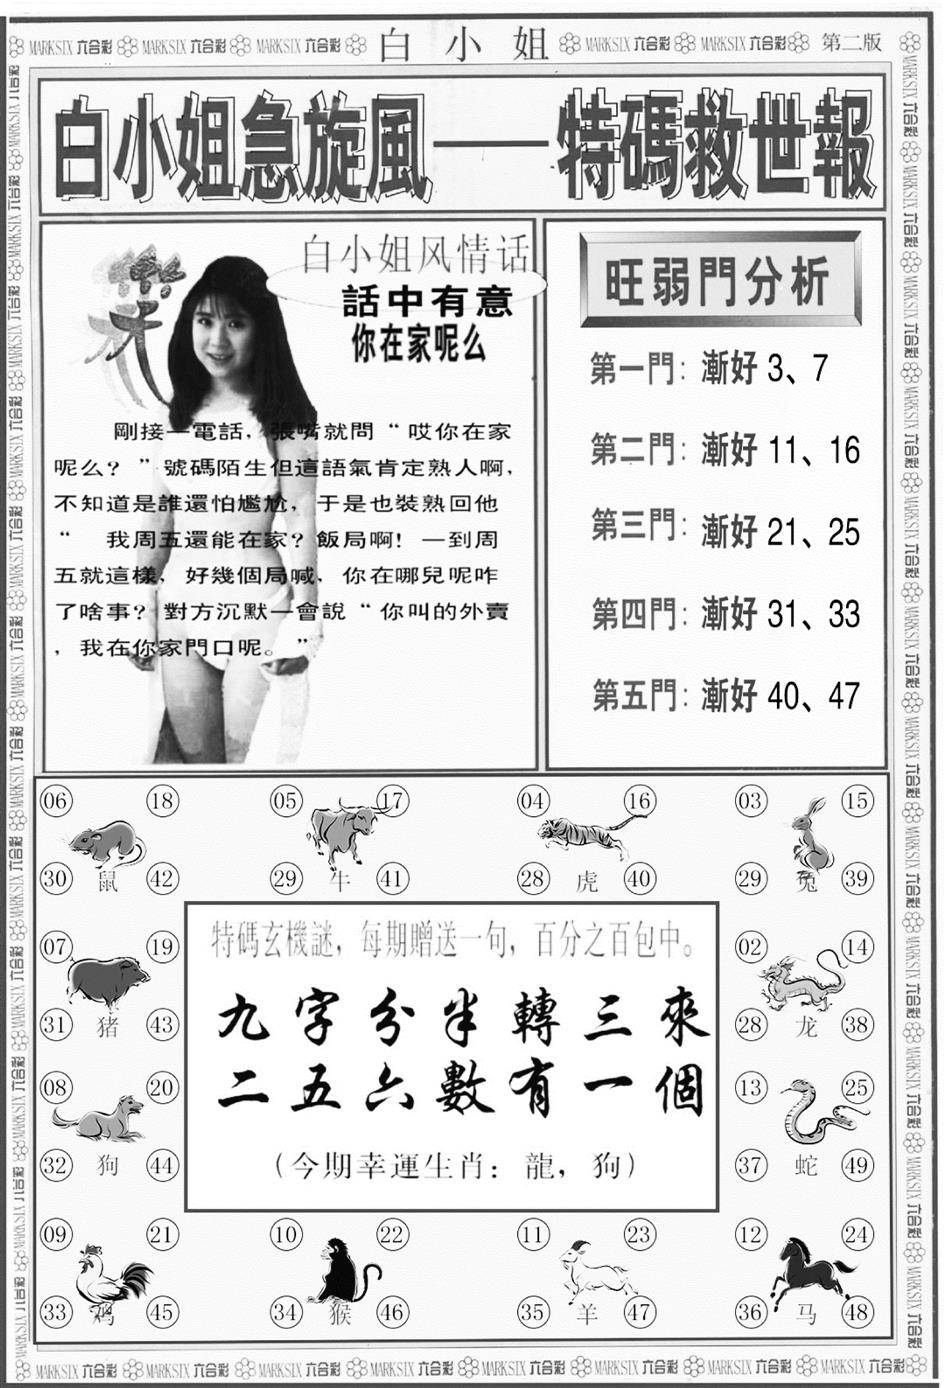 MARKSIX 六合彩 MARKSIX 六合彩 MARKSIX 六合彩 白小姐 MARKSIX 六合彩 MARKSIX 六合彩 第二版
白小姐急旋風——特碼救世報
樂
白小姐风情话
話中有意
你在家呢么
剛接一電話，張嘴就問“哎你在家
呢么？”號碼陌生但這語氣肯定熟人啊，
不知道是誰還怕尷尬，于是也裝熟回他
“ 我周五還能在家？飯局啊！一到周
五就這樣，好幾個局喊，你在哪兒呢咋
了啥事？對方沉默一會說“你叫的外賣
，我在你家門口呢。”
旺弱門分析
第一門：漸好 3、7
第二門：漸好 11、16
第三門：漸好 21、25
第四門：漸好 31、33
第五門：漸好 40、47
06 18
30 鼠 42
05 17
29 牛 41
04 16
28 虎 40
03 15
29 兔 39
07 19
31 猪 43
02 14
28 龙 38
08 20
32 狗 44
13 25
37 蛇 49
特碼玄機謎，每期贈送一句，百分之百包中。
九字分半轉三來
二五六數有一個
（今期幸運生肖：龍，狗）
09 21
33 鸡 45
10 22
34 猴 46
11 23
35 羊 47
12 24
36 马 48
MARKSIX 六合彩 MARKSIX 六合彩 MARKSIX 六合彩 MARKSIX 六合彩 MARKSIX 六合彩 MARKSIX 六合彩 MARKSIX 六合彩 MARKSIX 六合彩